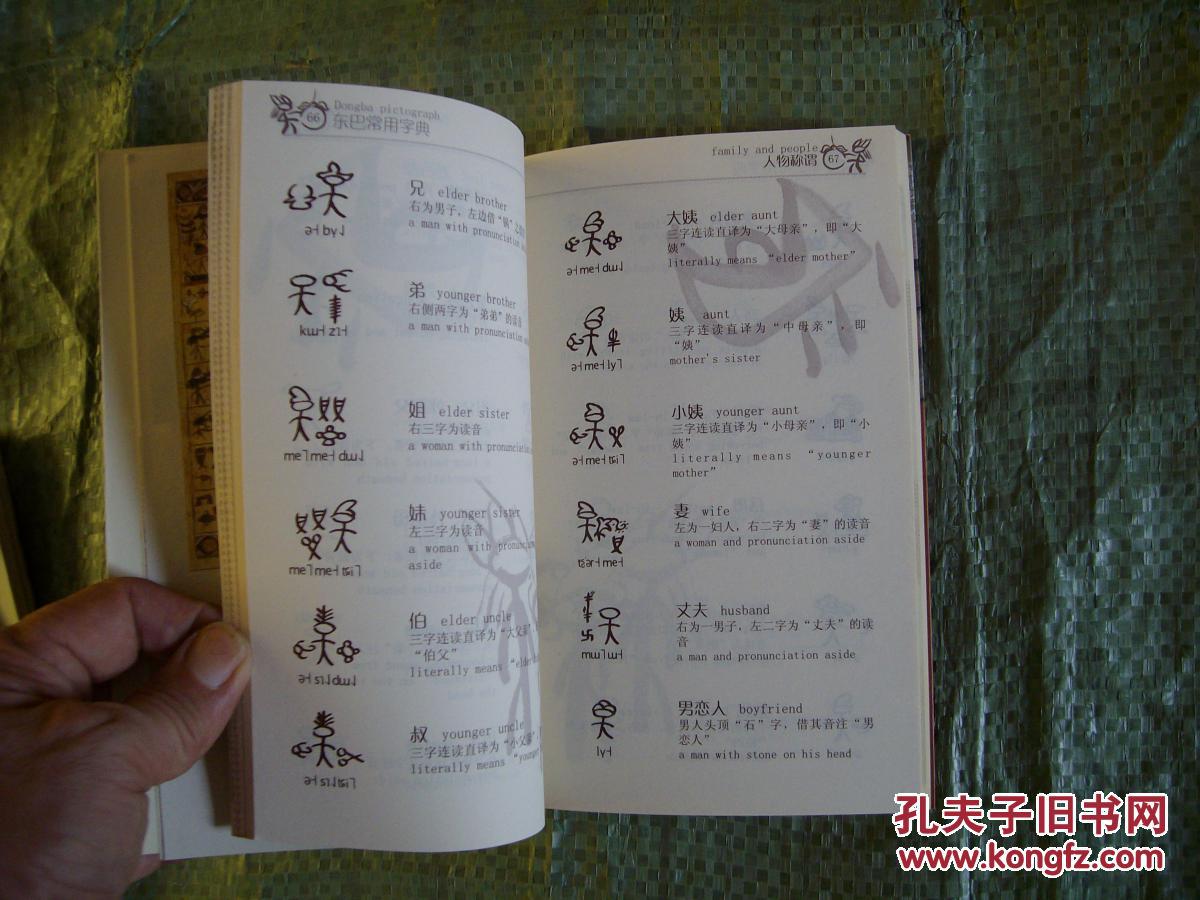 66
Dongba pictograph
东巴常用字典
兄 elder brother
右为男子，左边借“锅”之
a man with pronunciation
ə˧ by˩
弟 younger brother
右侧两字为“弟弟”的读音
a man with pronunciation
kɯ˧ zɿ˧
姐 elder sister
右三字为读音
a woman with pronunciation
me˥ me˧ dɯ˩
妹 younger sister
左三字为读音
a woman with
aside
me˥ me˧ tɕi˥
伯 elder uncle
三字连读直译为“大父亲
“伯父”
literally means “elder
叔 younger uncle
三字连读直译为“小父亲
literally means
family and people
人物称谓
67
大姨 elder aunt
三字连读直译为“大母亲”，即“大
姨”
literally means “elder mother”
ə˧ me˧ dɯ˩
姨 aunt
三字连读直译为“中母亲”，即
“姨”
mother's sister
ə˧ me˧ ly˥
小姨 younger aunt
三字连读直译为“小母亲”，即“小
姨”
literally means “younger
mother”
ə˧ me˧ tɕi˥
妻 wife
左为一妇人，右二字为“妻”的读音
a woman and pronunciation aside
丈夫 husband
右为一男子，左二字为“丈夫”的读
音
a man and pronunciation aside
男恋人 boyfriend
男人头顶“石”字，借其音注“男
恋人”
a man with stone on his head
ly˧
孔夫子旧书网
www.kongfz.com